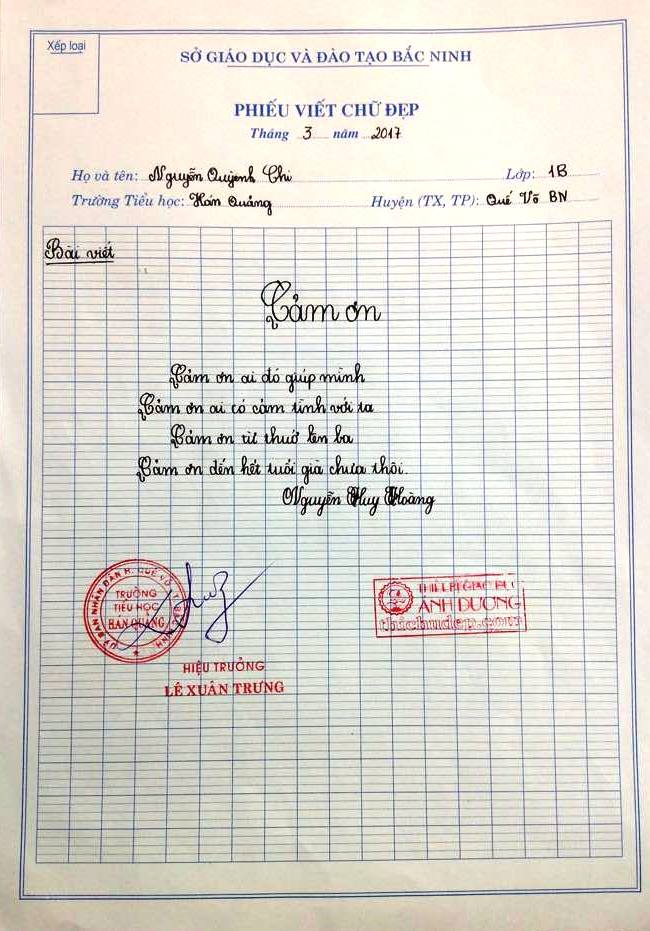 Xếp loại
SỞ GIÁO DỤC VÀ ĐÀO TẠO BẮC NINH
PHIẾU VIẾT CHỮ ĐẸP
Tháng 3 năm 2017
Họ và tên: Nguyễn Quỳnh Chi Lớp: 1B
Trường Tiểu học: Hán Quảng Huyện (TX, TP): Quế Võ BN
Bài viết
Cảm ơn
Cảm ơn ai đó giúp mình
Cảm ơn ai có cảm tình với ta
Cảm ơn từ thuở lên ba
Cảm ơn đến hết tuổi già chưa thôi.
Nguyễn Huy Hoàng
ỦY BAN NHÂN DÂN H. QUẾ VÕ
TRƯỜNG
TIỂU HỌC
HÁN QUẢNG
HIỆU TRƯỞNG
LÊ XUÂN TRƯNG
THIẾT BỊ GIÁO DỤC
ÁNH DƯƠNG